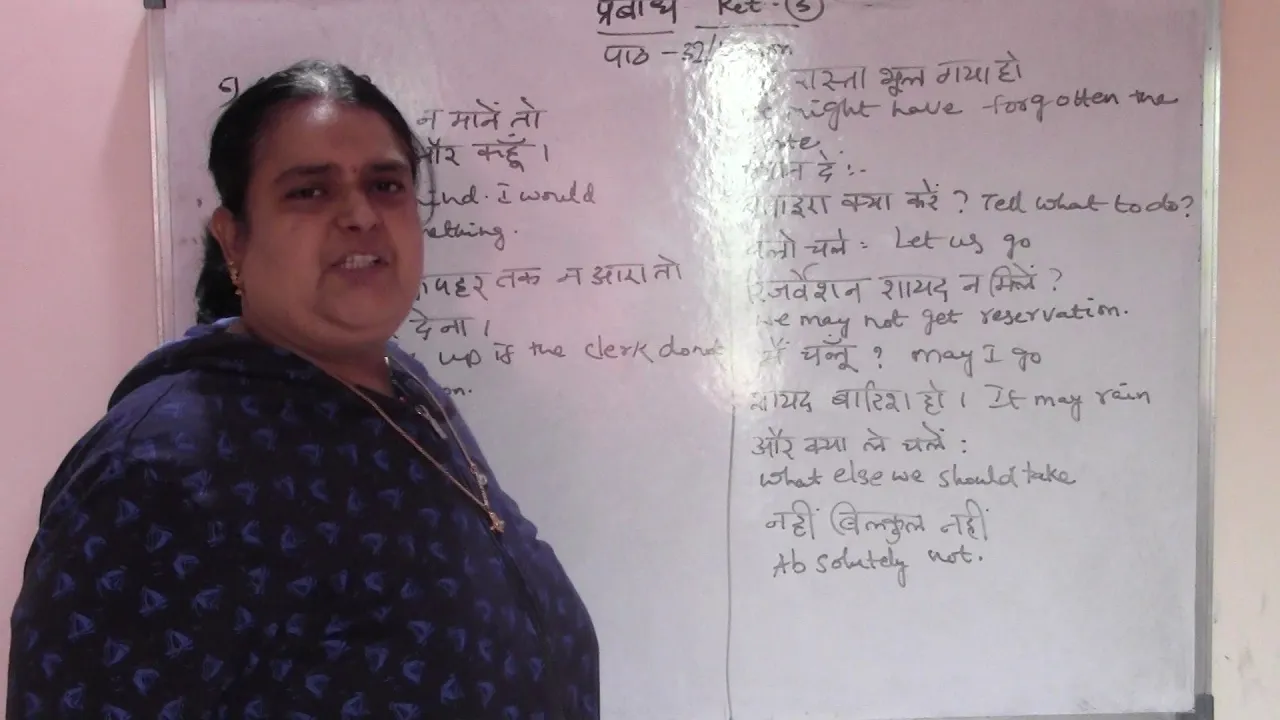 प्रबोध Ret - (5)
पाठ - 32/
न मानें तो
और कहूँ ।
I would
तक न आए तो
देना ।
up if the clerk donot
रास्ता भूल गया हो
might have forgotten the
दें :-
क्या करें ? Tell what to do?
चलो चलें : Let us go
रिजर्वेशन शायद न मिलें ?
may not get reservation.
मैं चलूँ ? may I go
शायद बारिश हो । It may rain
और क्या ले चलें :
what else we should take
नहीं बिलकुल नहीं
Absolutely not.